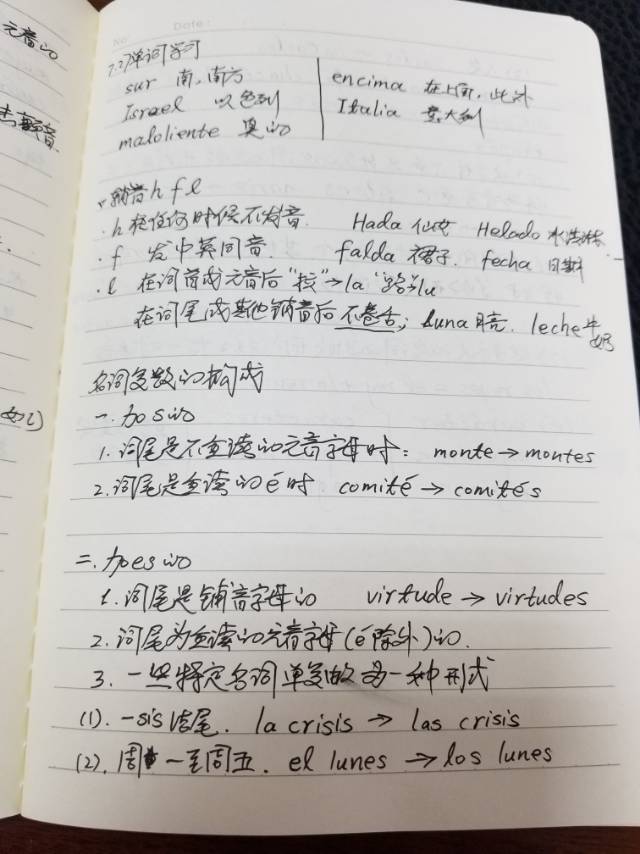 元音的
去辅音
如已)
No.
Date:
7.27单词学习
sur 南,南方
Israel 以色列
maloliente 臭的
encima 在上面,此外
Italia 意大利
辅音 h f l
· h 在任何时候不发音. Hada 仙女 Helado 冰淇淋
· f 发中英同音. falda 裙子. fecha 日期
· l 在词首或元音后 "拉"→la "路"lu
在词尾或其他辅音后 不卷舌; luna 月亮. leche 牛奶
名词复数的构成
一.加s的
1.词尾是不重读的元音字母时: monte → montes
2.词尾是重读的é时 comité → comités
二.加es的
1.词尾是辅音字母的 virtude → virtudes
2.词尾为重读的元音字母(é除外)的.
3.一些特定名词单复数为一种形式
(1). -sis结尾. la crisis → las crisis
(2).周一至周五. el lunes → los lunes